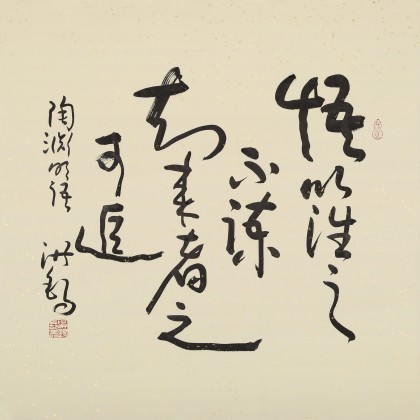 悟以往之
不諫
知来者之
可追
陶淵明語